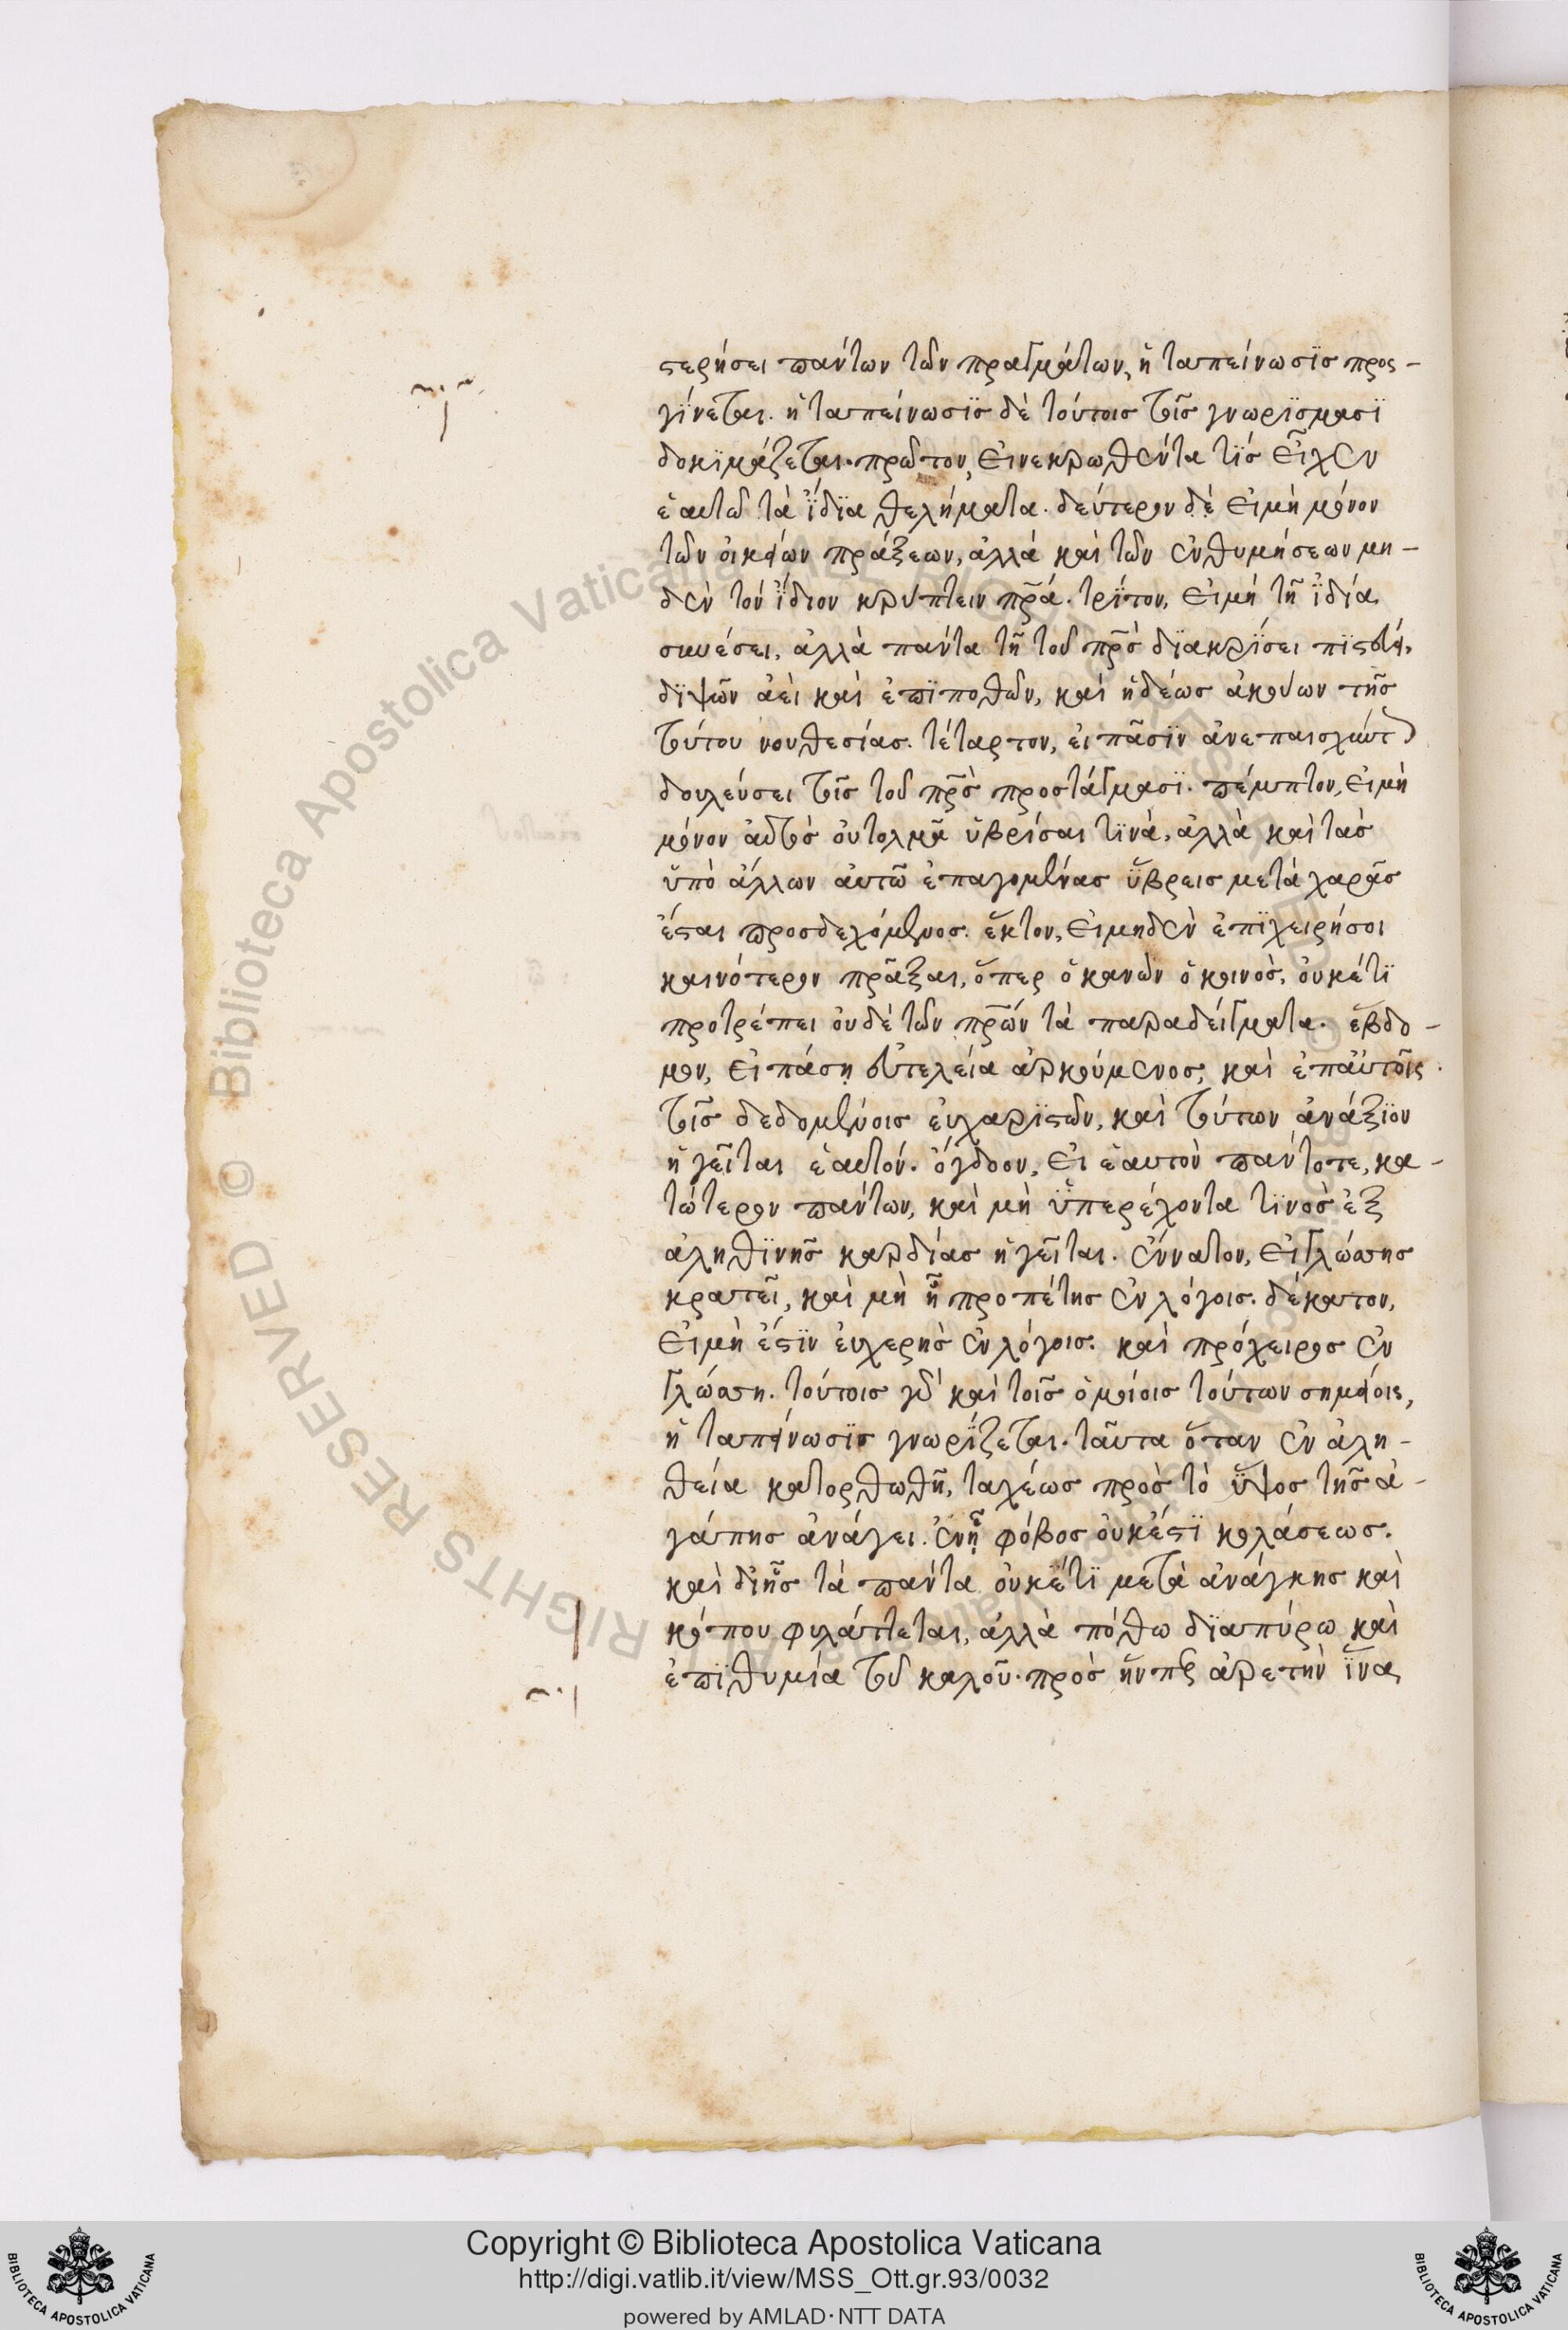 στερήσει πάντων τῶν πραγμάτων, ἡ ταπείνωσϊσ προσ-
γίνεται. ἡ ταπείνωσϊσ δὲ τούτοισ τοῖσ γνωρϊσμασϊ
δοκϊμάζεται. πρῶτον, εἰ νεκρωθέντα τίσ εἶχεν
ἑαυτῶ τὰ ἴδϊα θελήματα. δεύτερον δὲ εἰ μὴ μόνον
τῶν οἰκείων πράξεων, ἀλλὰ καὶ τῶν ἐνθυμήσεων μη-
δὲν τὸν ἴδιον κρύπτειν πρ̅α. τρίτον, εἰ μὴ τῆ ἰδία
συνέσει, ἀλλὰ πάντα τῆ τοῦ πρ̅σ δϊακρίσει πϊστεύει,
δϊψῶν ἀεὶ καὶ ἐπϊποθῶν, καὶ ἡδέωσ ἀκούων τῆσ
τούτου νουθεσίασ. τέταρτον, εἰ πᾶσϊν ἀνεπαισχύντωσ
δουλεύσει τοῖσ τοῦ πρ̅σ προστάγμασϊ. πέμπτον, εἰ μὴ
μόνον αὐτὸσ οὐ τολμᾶ ὑβρίσαι τϊνὰ, ἀλλὰ καὶ τὰσ
ὑπὸ ἄλλων αὐτῶ ἐπαγομένασ ὕβρεισ μετὰ χαρᾶσ
ἔσται προσδεχόμενοσ. ἕκτον, εἰ μηδὲν ἐπϊχειρήσοι
καινότερον πρᾶξαι, ὅπερ ὁ κανὼν ὁ κοινὸσ, οὐκέτϊ
προτρέπει οὐδὲ τῶν πρ̅ων τὰ παραδείγματα. ἕβδο-
μον, εἰ πάση εὐτελεία ἀρκούμενοσ, καὶ ἐπ αὐτοῖς
τοῖσ δεδομένοισ εὐχαρϊστῶν, καὶ τούτων ἀνάξϊον
ἡγεῖται ἑαυτόν. ὄγδοον, εἰ ἑαυτὸν πάντοτε, κα-
τώτερον πάντων, καὶ μὴ ὑπερέχοντα τϊνοσ ἐξ
ἀληθϊνῆσ καρδίασ ἡγεῖται. ἔννατον, εἰ γλώσσησ
κρατεῖ, καὶ μὴ ἦ προπέτησ ἐν λόγοισ. δέκατον,
εἰ μὴ ἔστϊν εὐχερὴσ ἐν λόγοισ. καὶ πρόχειροσ ἐν
γλώσση. τούτοισ γὰρ καὶ τοῖσ ὁμοίοισ τούτων σημείοις,
ἡ ταπείνωσϊσ γνωρίζεται. ταῦτα ὅταν ἐν ἀλη-
θεία κατορθωθῆ, ταχέωσ πρὸσ τὸ ὕψοσ τῆσ ἀ-
γάπησ ἀνάγει. ἐν ἧ φόβοσ οὐκ ἔστϊ κολάσεωσ.
καὶ δι ἧσ τὰ πάντα οὐκέτϊ μετὰ ἀνάγκησ καὶ
κόπου φυλάττεται, ἀλλὰ πόθω δϊαπύρω καὶ
ἐπϊθυμία τοῦ καλοῦ. πρὸσ ἥνπερ ἀρετὴν ἵνα
Copyright © Biblioteca Apostolica Vaticana
http://digi.vatlib.it/view/MSS_Ott.gr.93/0032
powered by AMLAD·NTT DATA